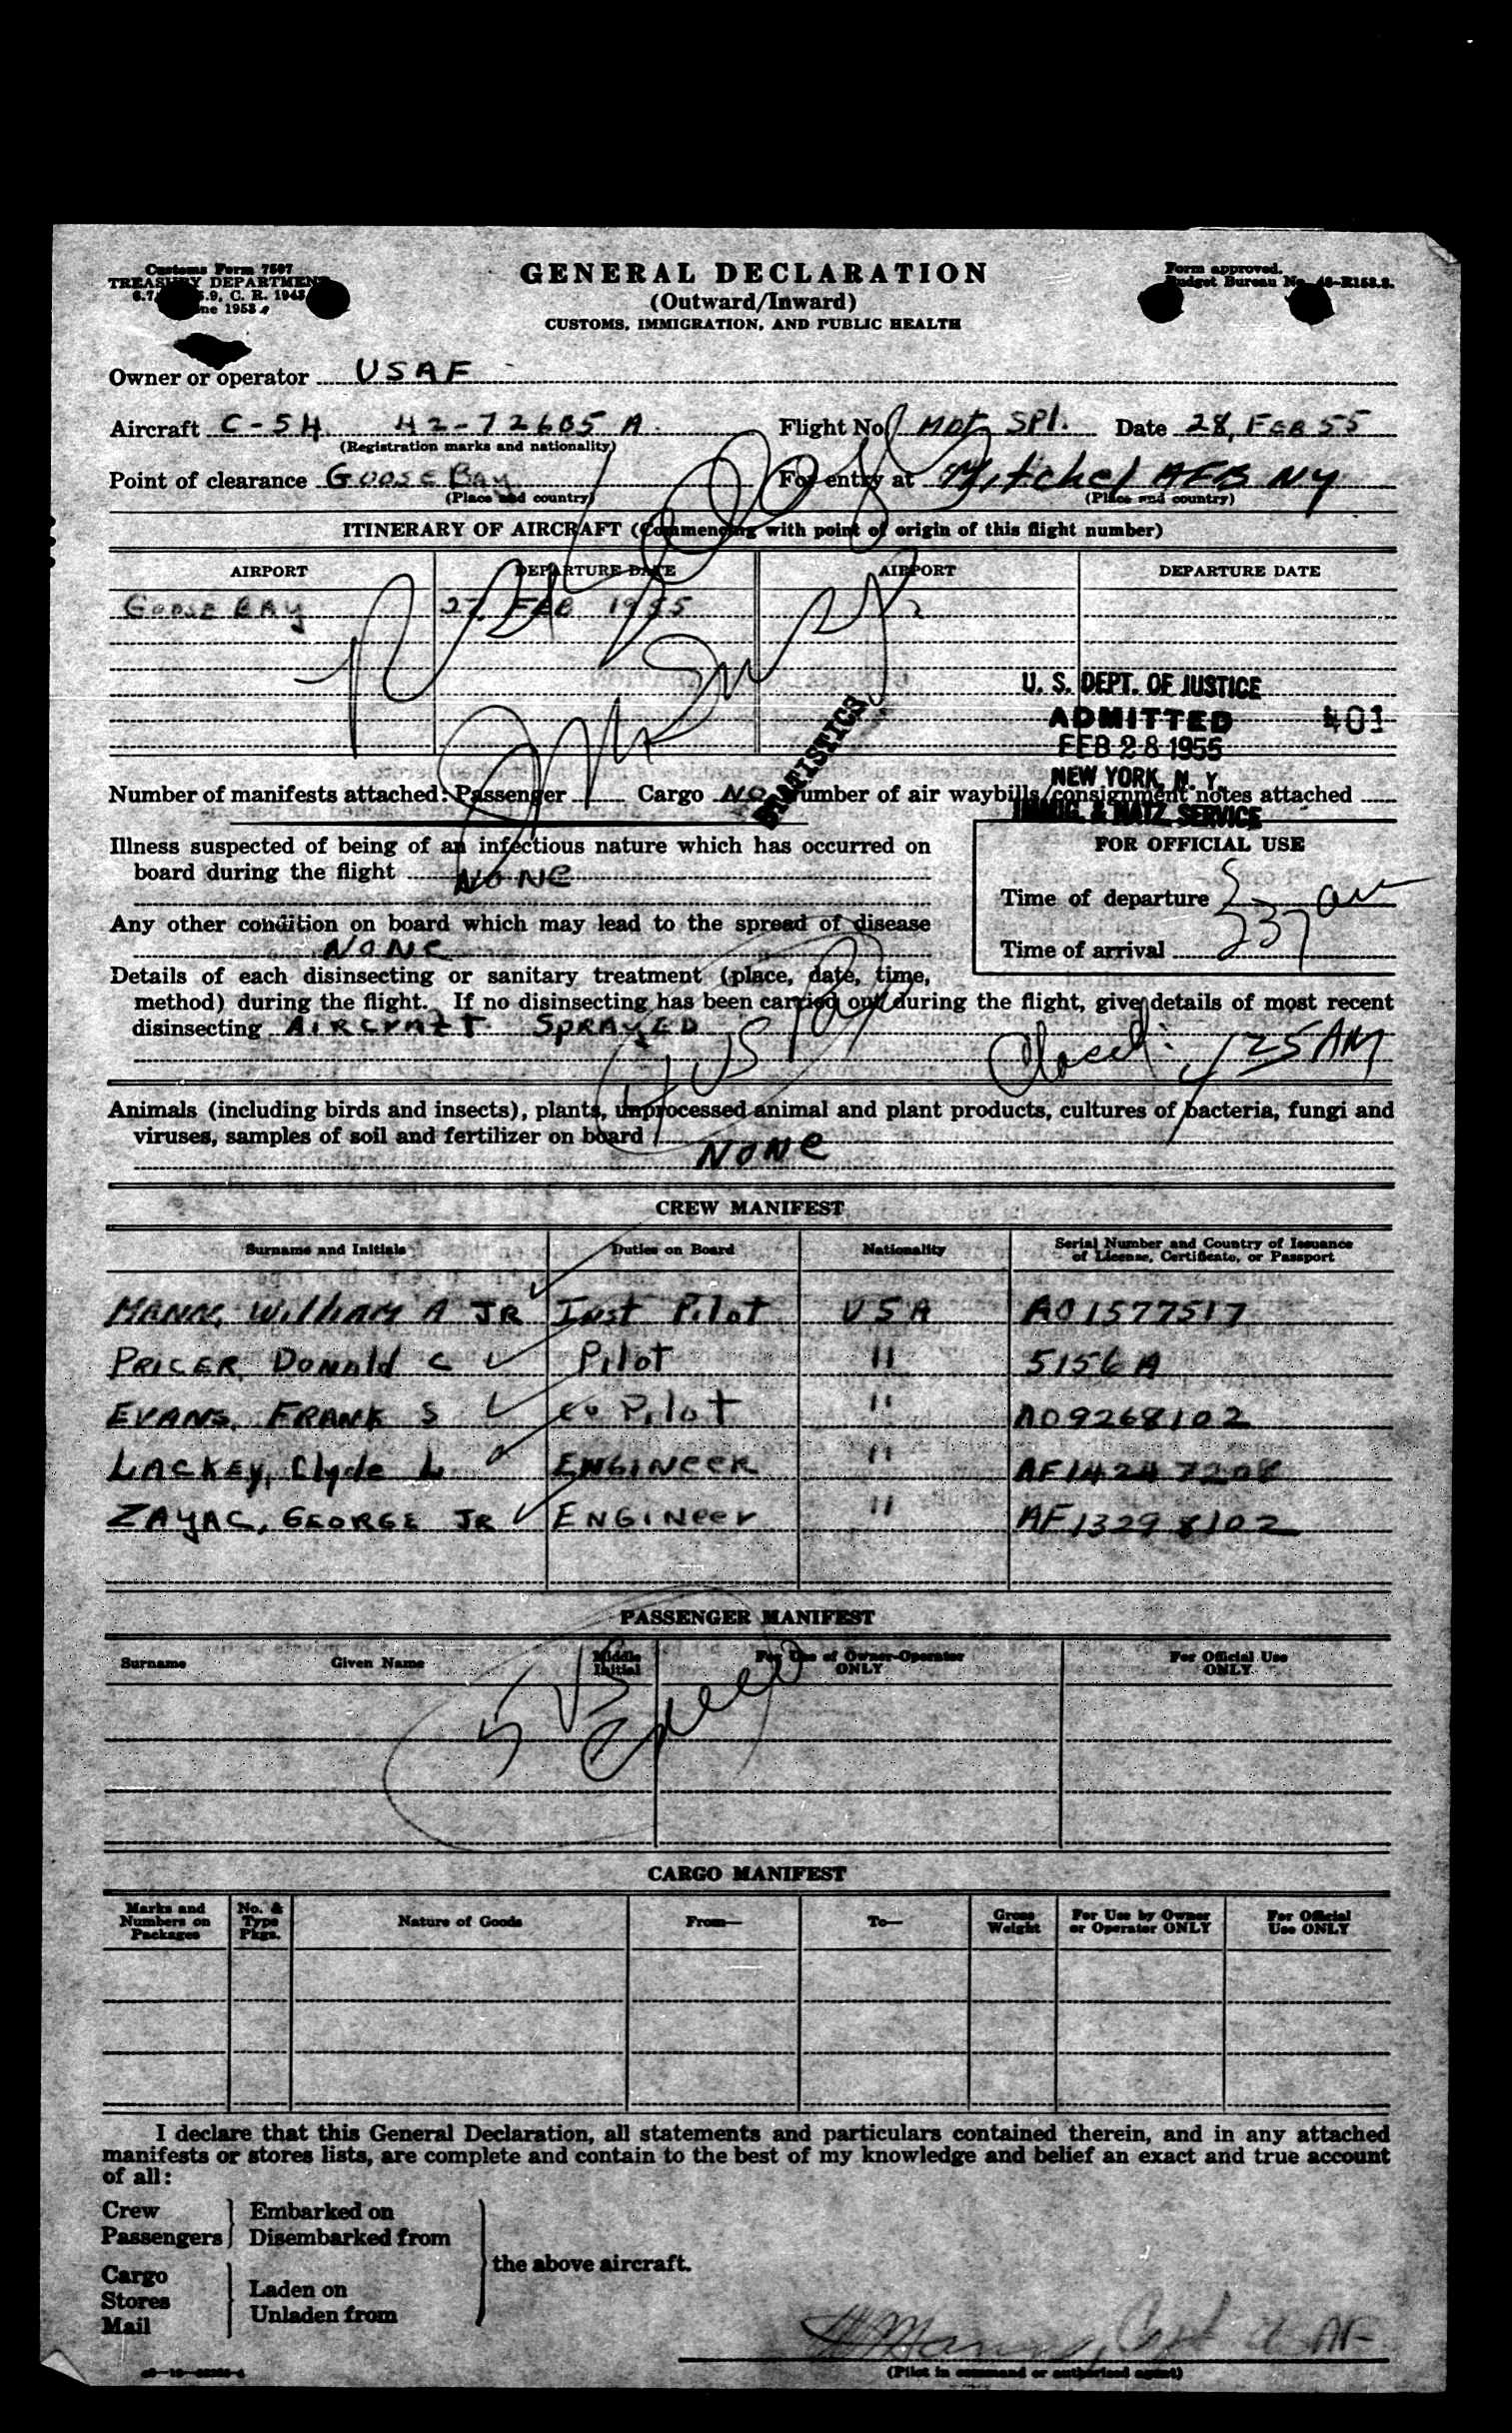 Customs Form 7507
TREASURY DEPARTMENT
C. R. 1943
1953
GENERAL DECLARATION
(Outward/Inward)
CUSTOMS, IMMIGRATION, AND PUBLIC HEALTH
Form approved.
Budget Bureau No.
Owner or operator USAF
Aircraft C-54 42-72685 A Flight No. Date 28, FEB 55
(Registration marks and nationality)
Point of clearance GOOSE BAY For entry at Mitchel AFB NY
(Place and country) (Place and country)
ITINERARY OF AIRCRAFT (Commencing with point of origin of this flight number)
AIRPORT DEPARTURE DATE AIRPORT DEPARTURE DATE
GOOSE BAY 27 FEB 1955
U. S. DEPT. OF JUSTICE
ADMITTED 401
FEB 28 1955
NEW YORK, N. Y.
IMMIG. & NATZ. SERVICE
STATISTICS
Number of manifests attached: Passenger Cargo NO Number of air waybills/consignment notes attached
Illness suspected of being of an infectious nature which has occurred on
board during the flight NONE
Any other condition on board which may lead to the spread of disease
NONE
FOR OFFICIAL USE
Time of departure
Time of arrival
Details of each disinsecting or sanitary treatment (place, date, time,
method) during the flight. If no disinsecting has been carried out during the flight, give details of most recent
disinsecting AIRCRAFT SPRAYED
25 AM
Animals (including birds and insects), plants, unprocessed animal and plant products, cultures of bacteria, fungi and
viruses, samples of soil and fertilizer on board
NONE
CREW MANIFEST
Surname and Initials Duties on Board Nationality Serial Number and Country of Issuance
of License, Certificate, or Passport
MANN, William A JR Inst Pilot USA AO1577517
PRICER, DONALD C Pilot " 5156A
EVANS, FRANK S Co Pilot " AO9268102
LACKEY, Clyde L ENGINEER " AF14247208
ZAYAC, GEORGE JR ENGINEer " AF13298102
PASSENGER MANIFEST
Surname Given Name Middle
Initial For Use of Owner-Operator
ONLY For Official Use
ONLY
CARGO MANIFEST
Marks and
Numbers on
Packages No. &
Type
Pkgs. Nature of Goods From— To— Gross
Weight For Use by Owner
or Operator ONLY For Official
Use ONLY
I declare that this General Declaration, all statements and particulars contained therein, and in any attached
manifests or stores lists, are complete and contain to the best of my knowledge and belief an exact and true account
of all:
Crew Embarked on
Passengers Disembarked from
the above aircraft.
Cargo
Stores Laden on
Mail Unladen from
(Pilot in command or authorized agent)